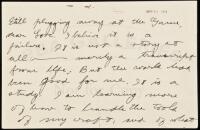 Still plugging away at the Game,
dear Bob. I believe it is a
failure. It is not a story at
all — merely a transcript
from life. But the work has
been good for me. It is a
study. I am learning more
of how to handle the tools
of my craft, and of what